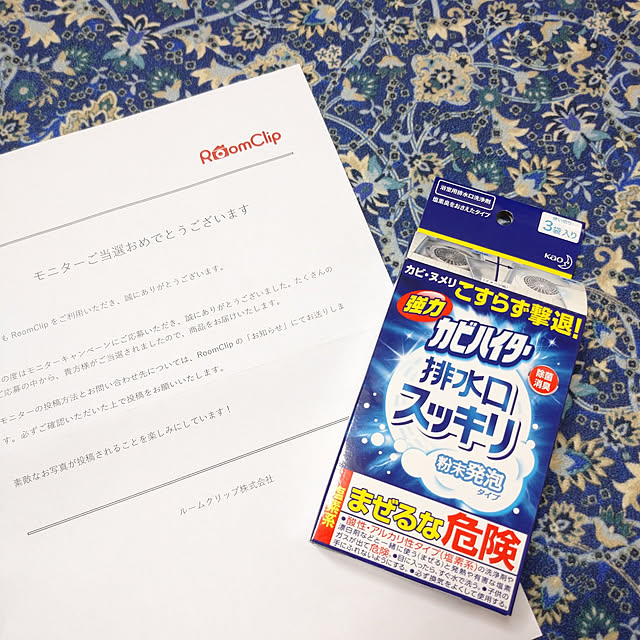 RoomClip
モニターご当選おめでとうございます
も RoomClip をご利用いただき、誠にありがとうございます。
の度はモニターキャンペーンにご応募いただき、誠にありがとうございました。たくさんの
ご応募の中から、貴方様がご当選されましたので、商品をお届けいたします。
モニターの投稿方法とお問い合わせ先については、RoomClip の「お知らせ」にてお送りしま
す。必ずご確認いただいた上で投稿をお願いいたします。
素敵なお写真が投稿されることを楽しみにしています！
ルームクリップ株式会社
浴室用排水口洗浄剤
塩素臭をおさえたタイプ
3袋入り
Kao
カビ・ヌメリ こすらず撃退!
強力
カビハイター
排水口
スッキリ
除菌
消臭
粉末発泡
タイプ
塩素系
まぜるな危険
●酸性・アルカリ性タイプ(塩素系)の洗浄剤や
漂白剤などと一緒に使う(まぜる)と発熱や有害な塩素
ガスが出て危険。●目に入ったら、すぐ水で洗う。●子供の
手にふれないようにする。●必ず換気をよくして使用する。